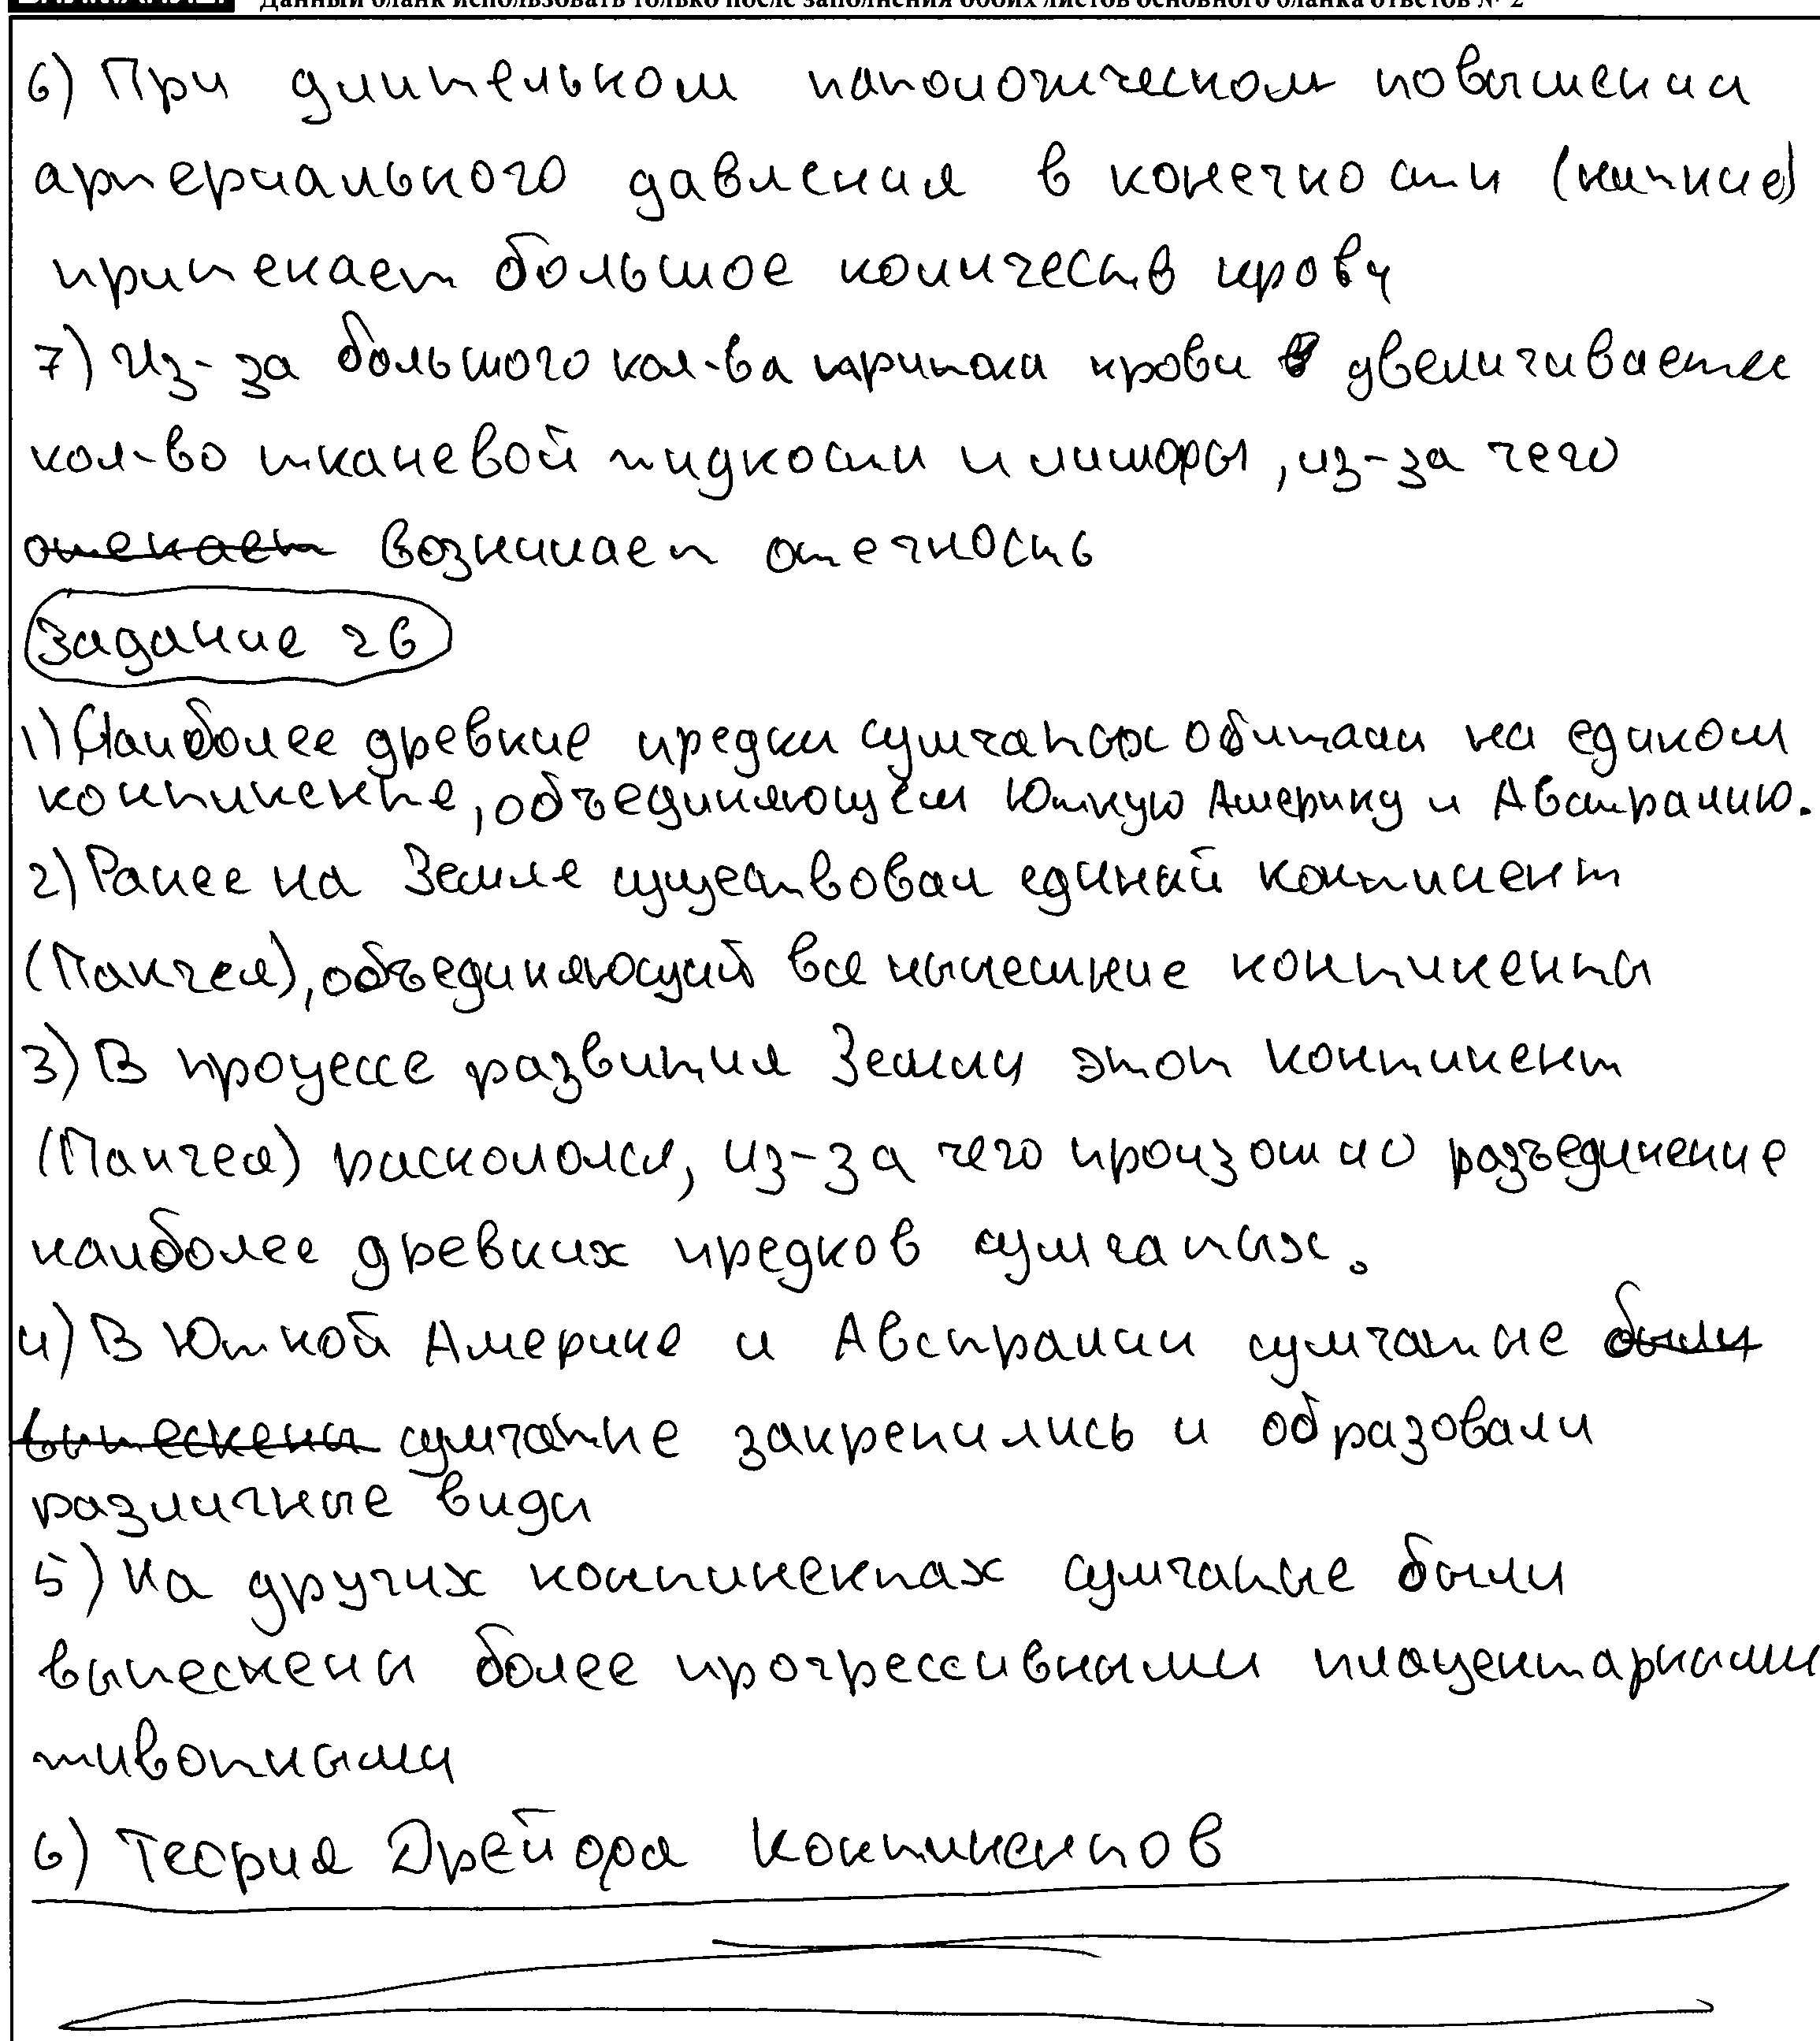 Данный бланк использовать только после заполнения обоих листов основного бланка ответов № 2
6) При длительном патологическом повышении
артериального давления в конечности (нижние)
притекает большое количеств крови
7) Из-за большого кол-ва притока крови увеличивается
кол-во тканевой жидкости и лимфы, из-за чего
отекает возникает отечность
Задание 26
1) Наиболее древние предки сумчатых обитали на едином
континенте, объединяющем Южную Америку и Австралию.
2) Ранее на Земле существовал единый континент
(Пангея), объединяющий все нынешние континенты
3) В процессе развития Земли этот континент
(Пангея) раскололся, из-за чего произошло разъединение
наиболее древних предков сумчатых.
4) В Южной Америке и Австралии сумчатые были
вытеснены сумчатые закрепились и образовали
различные виды
5) На других континентах сумчатые были
вытеснены более прогрессивными плацентарными
животными
6) Теория Дрейфа Континентов